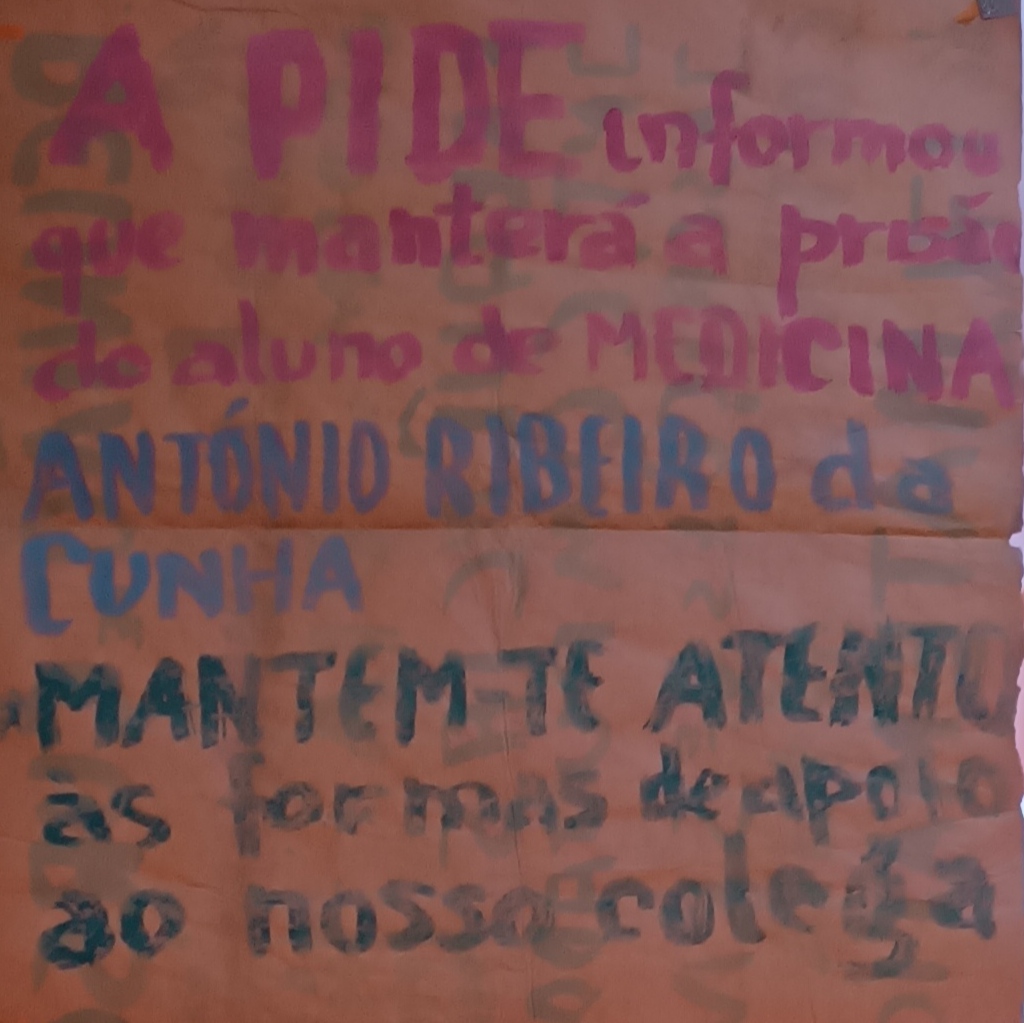 A PIDE informou
que manterá a prisão
do aluno de MEDICINA
ANTÓNIO RIBEIRO da
CUNHA
MANTEM-TE ATENTO
às formas de apoio
ao nosso colega